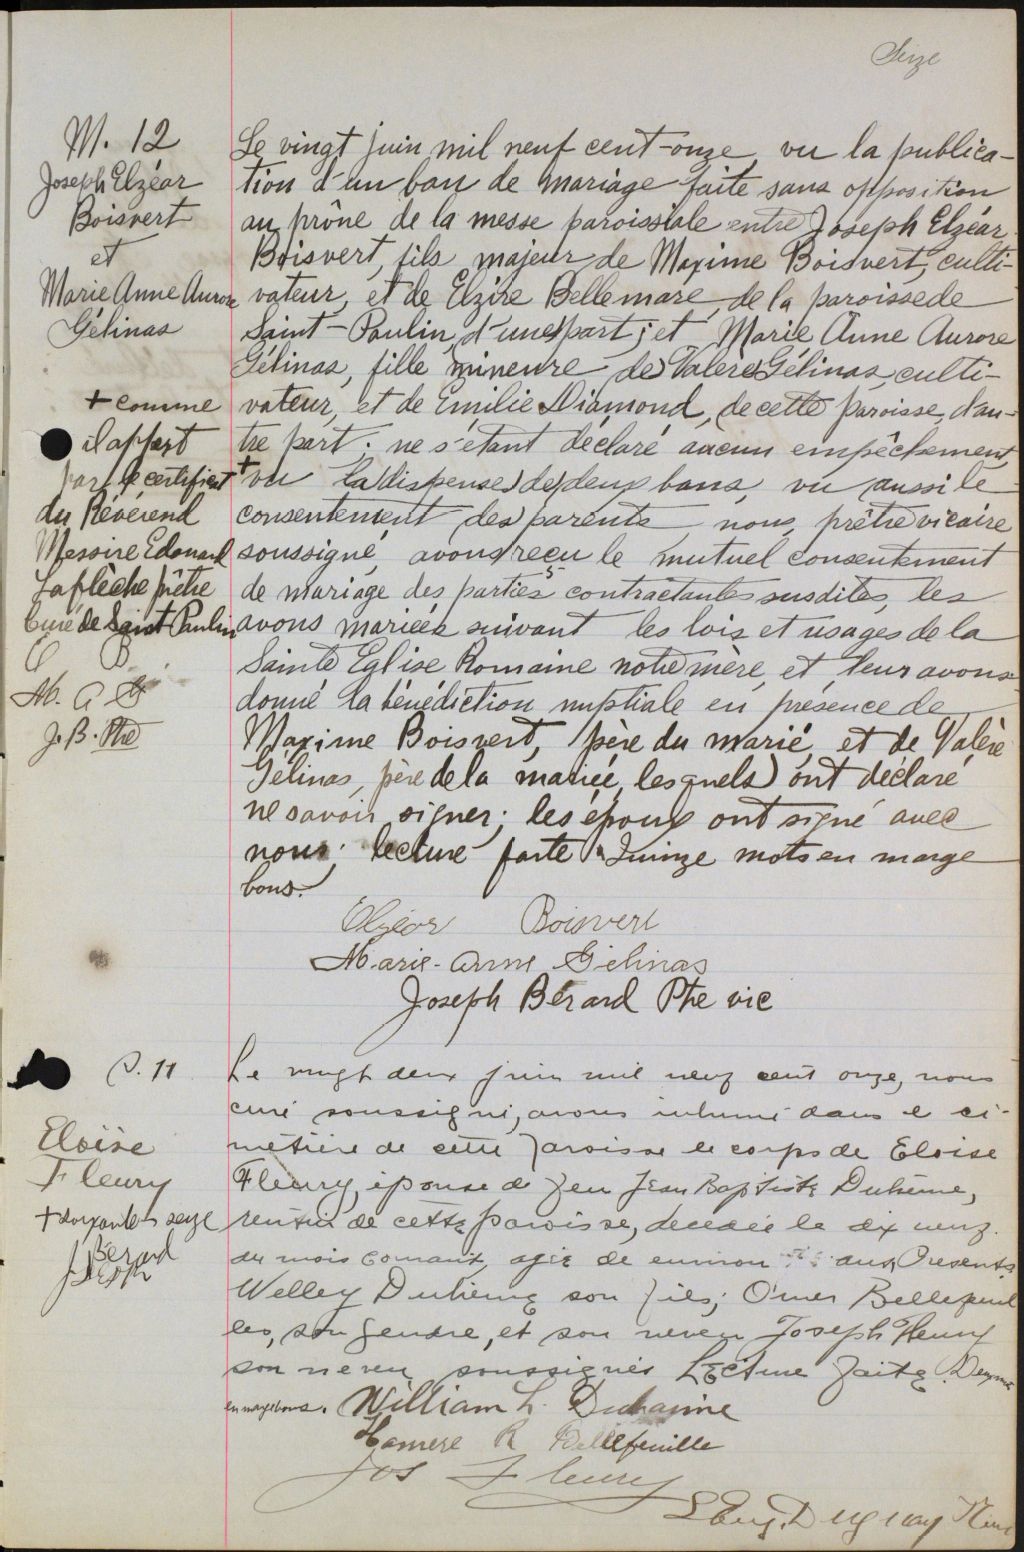 Seize
M. 12
Joseph Elzéar
Boisvert
et
Marie Anne Aurore
Gélinas
+ comme
il appert
par le certificat
du Révérend
Messire Edouard
Laflèche prêtre
Curé de Saint Paulin
J. B. Ptre
Le vingt juin mil neuf cent-onze, vu la publica-
tion d'un ban de mariage faite sans opposition
au prône de la messe paroissiale entre Joseph Elzéar
Boisvert, fils majeur de Maxime Boisvert, culti-
vateur, et de Elzire Bellemare, de la paroisse de
Saint-Paulin, d'une part; et Marie Anne Aurore
Gélinas, fille mineure de Valère Gélinas, culti-
vateur, et de Emilie Diamond, de cette paroisse, d'au-
tre part; ne s'étant déclaré aucun empêchement,
+ vu la dispense de deux bans, vu aussi le
consentement des parents, nous, prêtre vicaire
soussigné, avons reçu le mutuel consentement
de mariage des parties contractantes susdites, les
avons mariées suivant les lois et usages de la
Sainte Eglise Romaine notre mère, et leur avons
donné la bénédiction nuptiale en présence de
Maxime Boisvert, père du marié, et de Valère
Gélinas, père de la mariée, lesquels ont déclaré
ne savoir signer; les époux ont signé avec
nous; lecture faite. Quinze mots en marge
bons.
Elzéar Boisvert
Marie-Anne Gélinas
Joseph Bérard Ptre vic
S. 11
Eloïse
Fleury
+ soixante seize
Bérard
Le vingt deux juin mil neuf cent onze, nous
curé soussigné, avons inhumé dans le ci-
metière de cette paroisse le corps de Eloise
Fleury, épouse de feu Jean Baptiste Duhème,
rentier de cette paroisse, décédée le dix neuf
du mois courant, agée de environ + ans, Présents
Welley Duhème son fils; Omer Bellefeuil
les, son gendre, et son neveu Joseph Fleury
son neveu soussignés Lecture faite. Deux mots
en marge bons. William L. Duhaime
Hamere R Bellefeuille
Jos Fleury
L Eug. Duguay